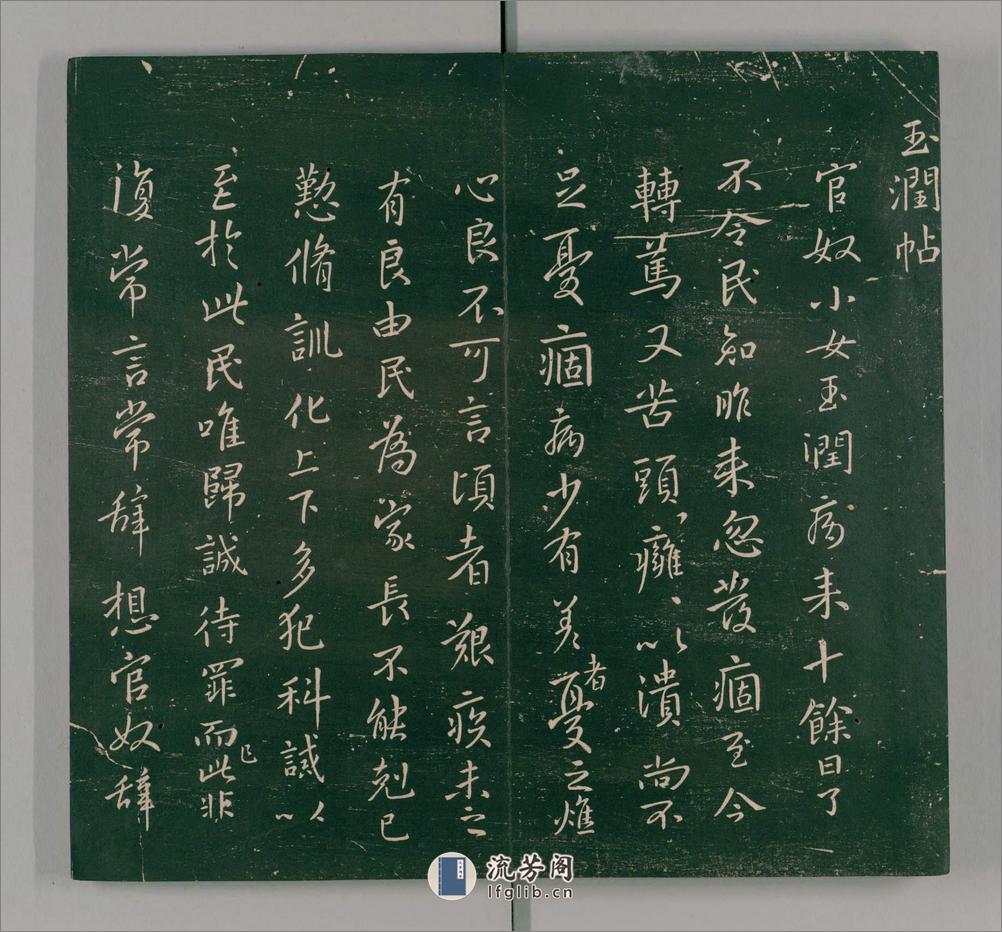 玉潤帖
官奴小女玉潤病来十餘日了
不令民知昨来忽發痼至今
轉篤又苦頭癰頭癰以潰尚不
足憂痼病少有差者憂之燋
心良不可言頃者艱疾未之
有良由民為家長不能剋己
懃脩訓化上下多犯科誡以
至於此民唯歸誠待罪而已此非
復常言常辭想官奴辭
流芳阁
lfglib.cn